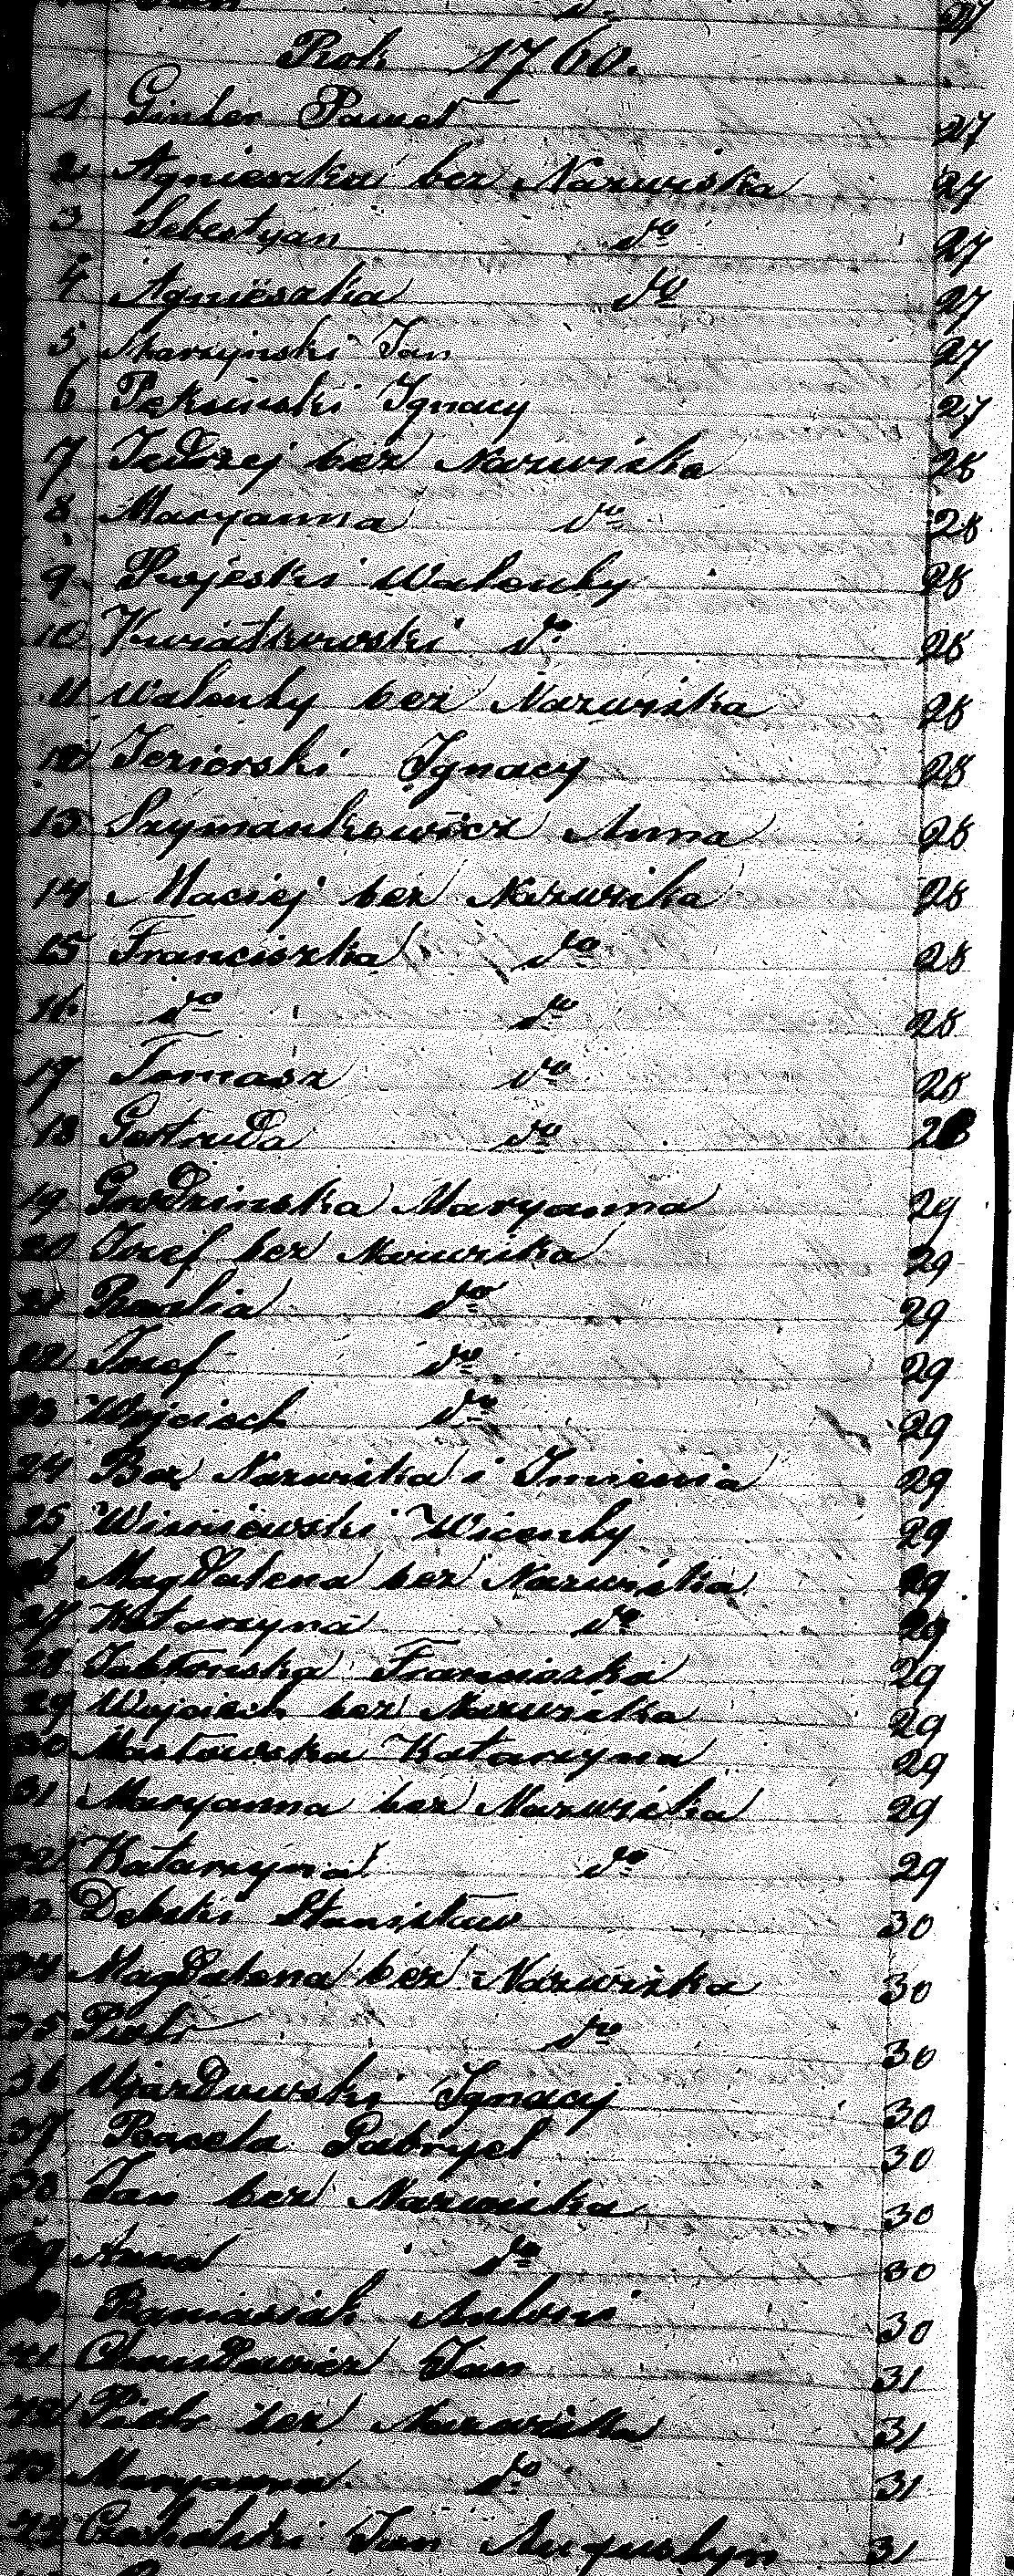 Jan do 27
Rok 1760.
1 Ginter Paweł 27
2 Agnieszka bez Nazwiska 27
3 Sebestyan do 27
4 Agnieszka do 27
5 Skarzynski Jan 27
6 Pękinski Ignacy 27
7 Jędrzej bez Nazwiska 28
8 Maryanna do 28
9 Walenty 28
10 Kwiatkowski do 28
11 Walenty bez Nazwiska 28
12 Jeziorski Ignacy 28
13 Szymankowicz Anna 28
14 Maciej bez Nazwiska 28
15 Franciszka do 28
16 do do 28
17 Tomasz do 28
18 Gertruda do 28
19 Grodzinska Maryanna 29
20 Jozef bez Nazwiska 29
21 Rozalia do 29
22 Jozef do 29
23 Wojciech do 29
24 Bez Nazwiska i Imienia 29
25 Wisniewski Wicenty 29
26 Magdalena bez Nazwiska 29
27 Katarzyna do 29
28 Jabłonska Franciszka 29
29 Wojciech bez Nazwiska 29
30 Masłowska Katarzyna 29
31 Maryanna bez Nazwiska 29
32 Katarzyna do 29
33 Dębski Stanisław 30
34 Magdalena bez Nazwiska 30
35 Piotr do 30
36 Ujazdowski Ignacy 30
37 Gabryel 30
38 Jan bez Nazwiska 30
39 Anna do 30
40 Banasiak Antoni 30
41 Jan 31
42 Piotr bez Nazwiska 31
43 Maryanna do 31
44 Jan Augustyn 31